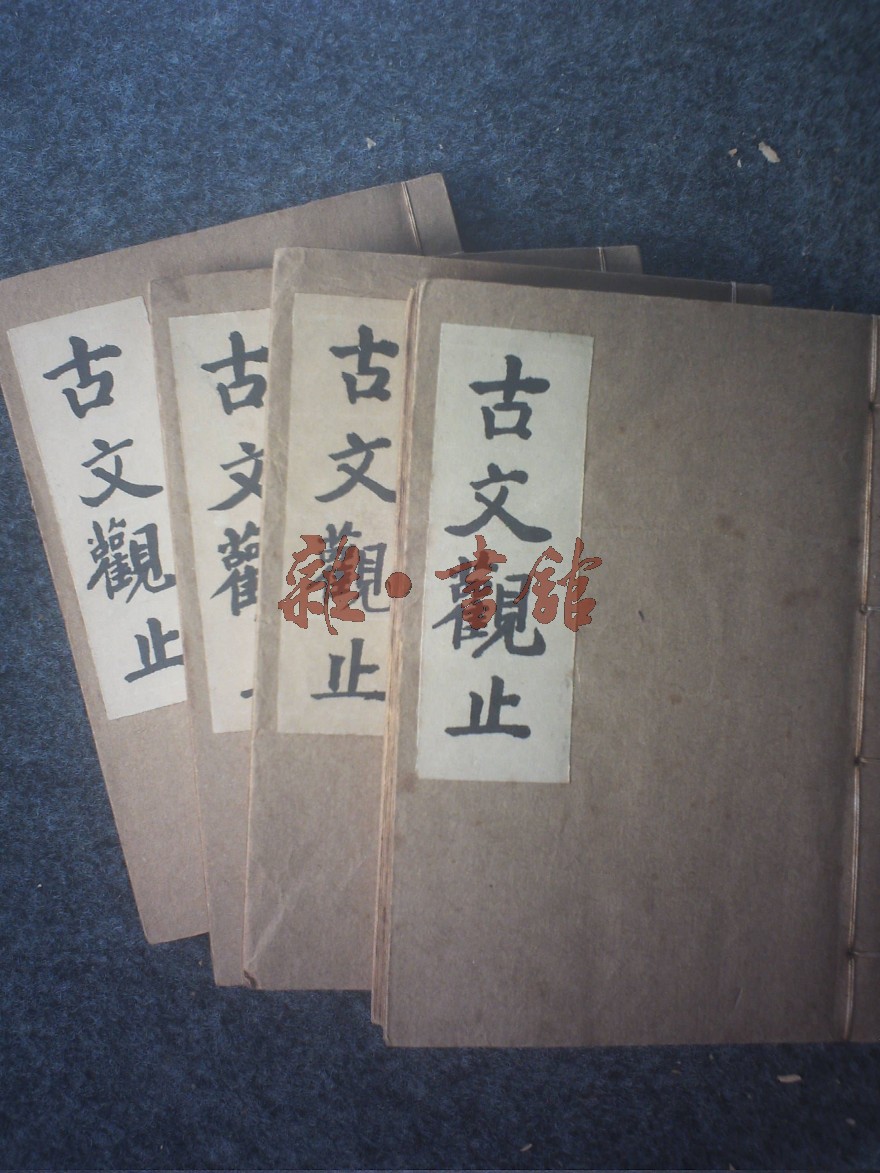 古文觀止
古文觀
古文觀止
古文觀止
雜·書館